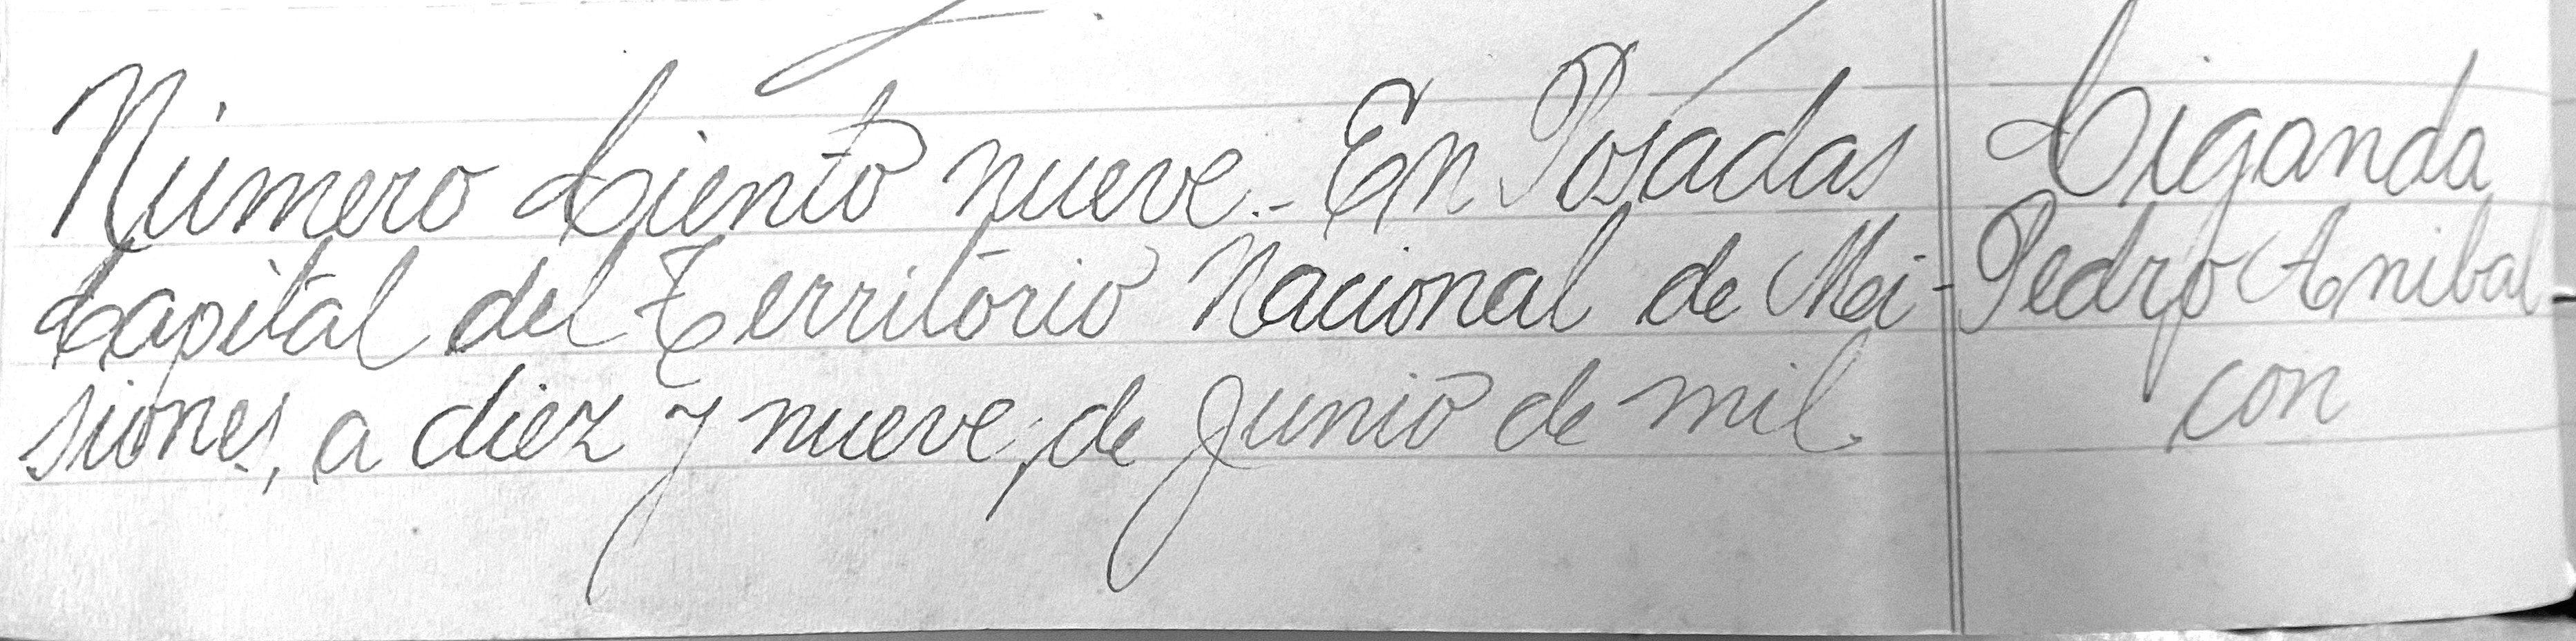 Número Ciento nueve.- En Posadas
Capital del Territorio Nacional de Mi-
siones, a diez y nueve de Junio de mil
Ciganda
Pedro Anibal-
con